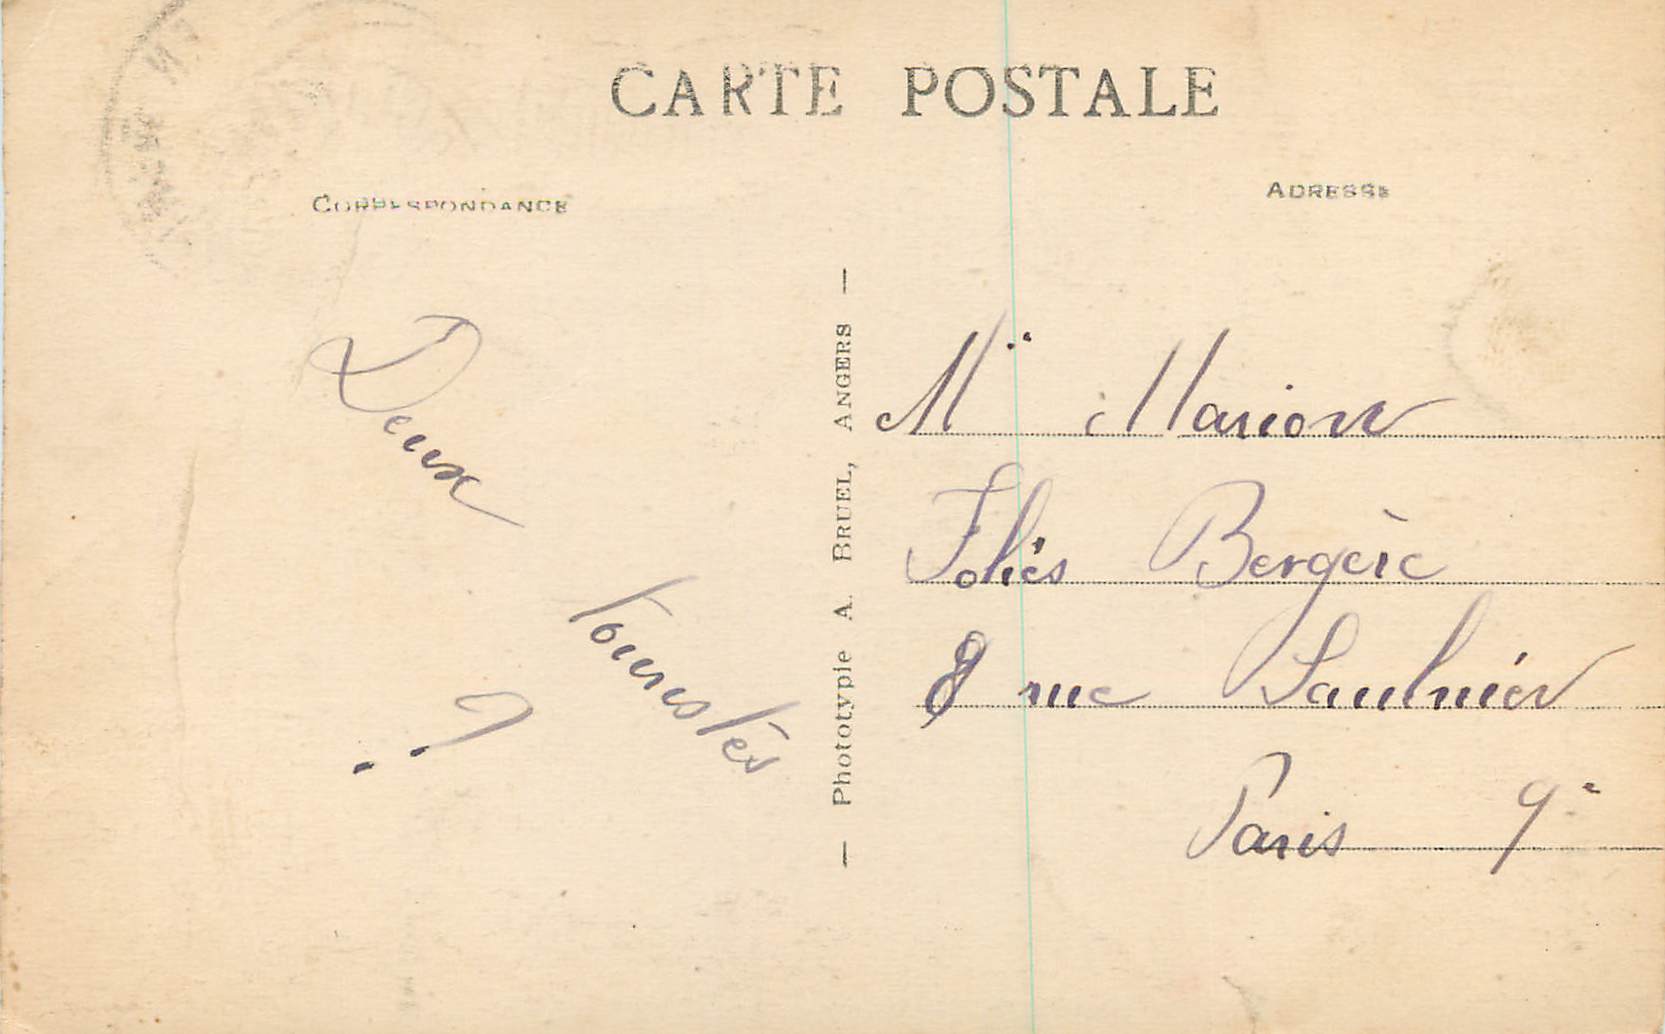 CARTE POSTALE
CORRESPONDANCE
ADRESSE
Deux
Touristes
?
— Phototypie A. Bruel, Angers —
M.. Marion
Folies Bergère
8 rue Saulnier
Paris 9e